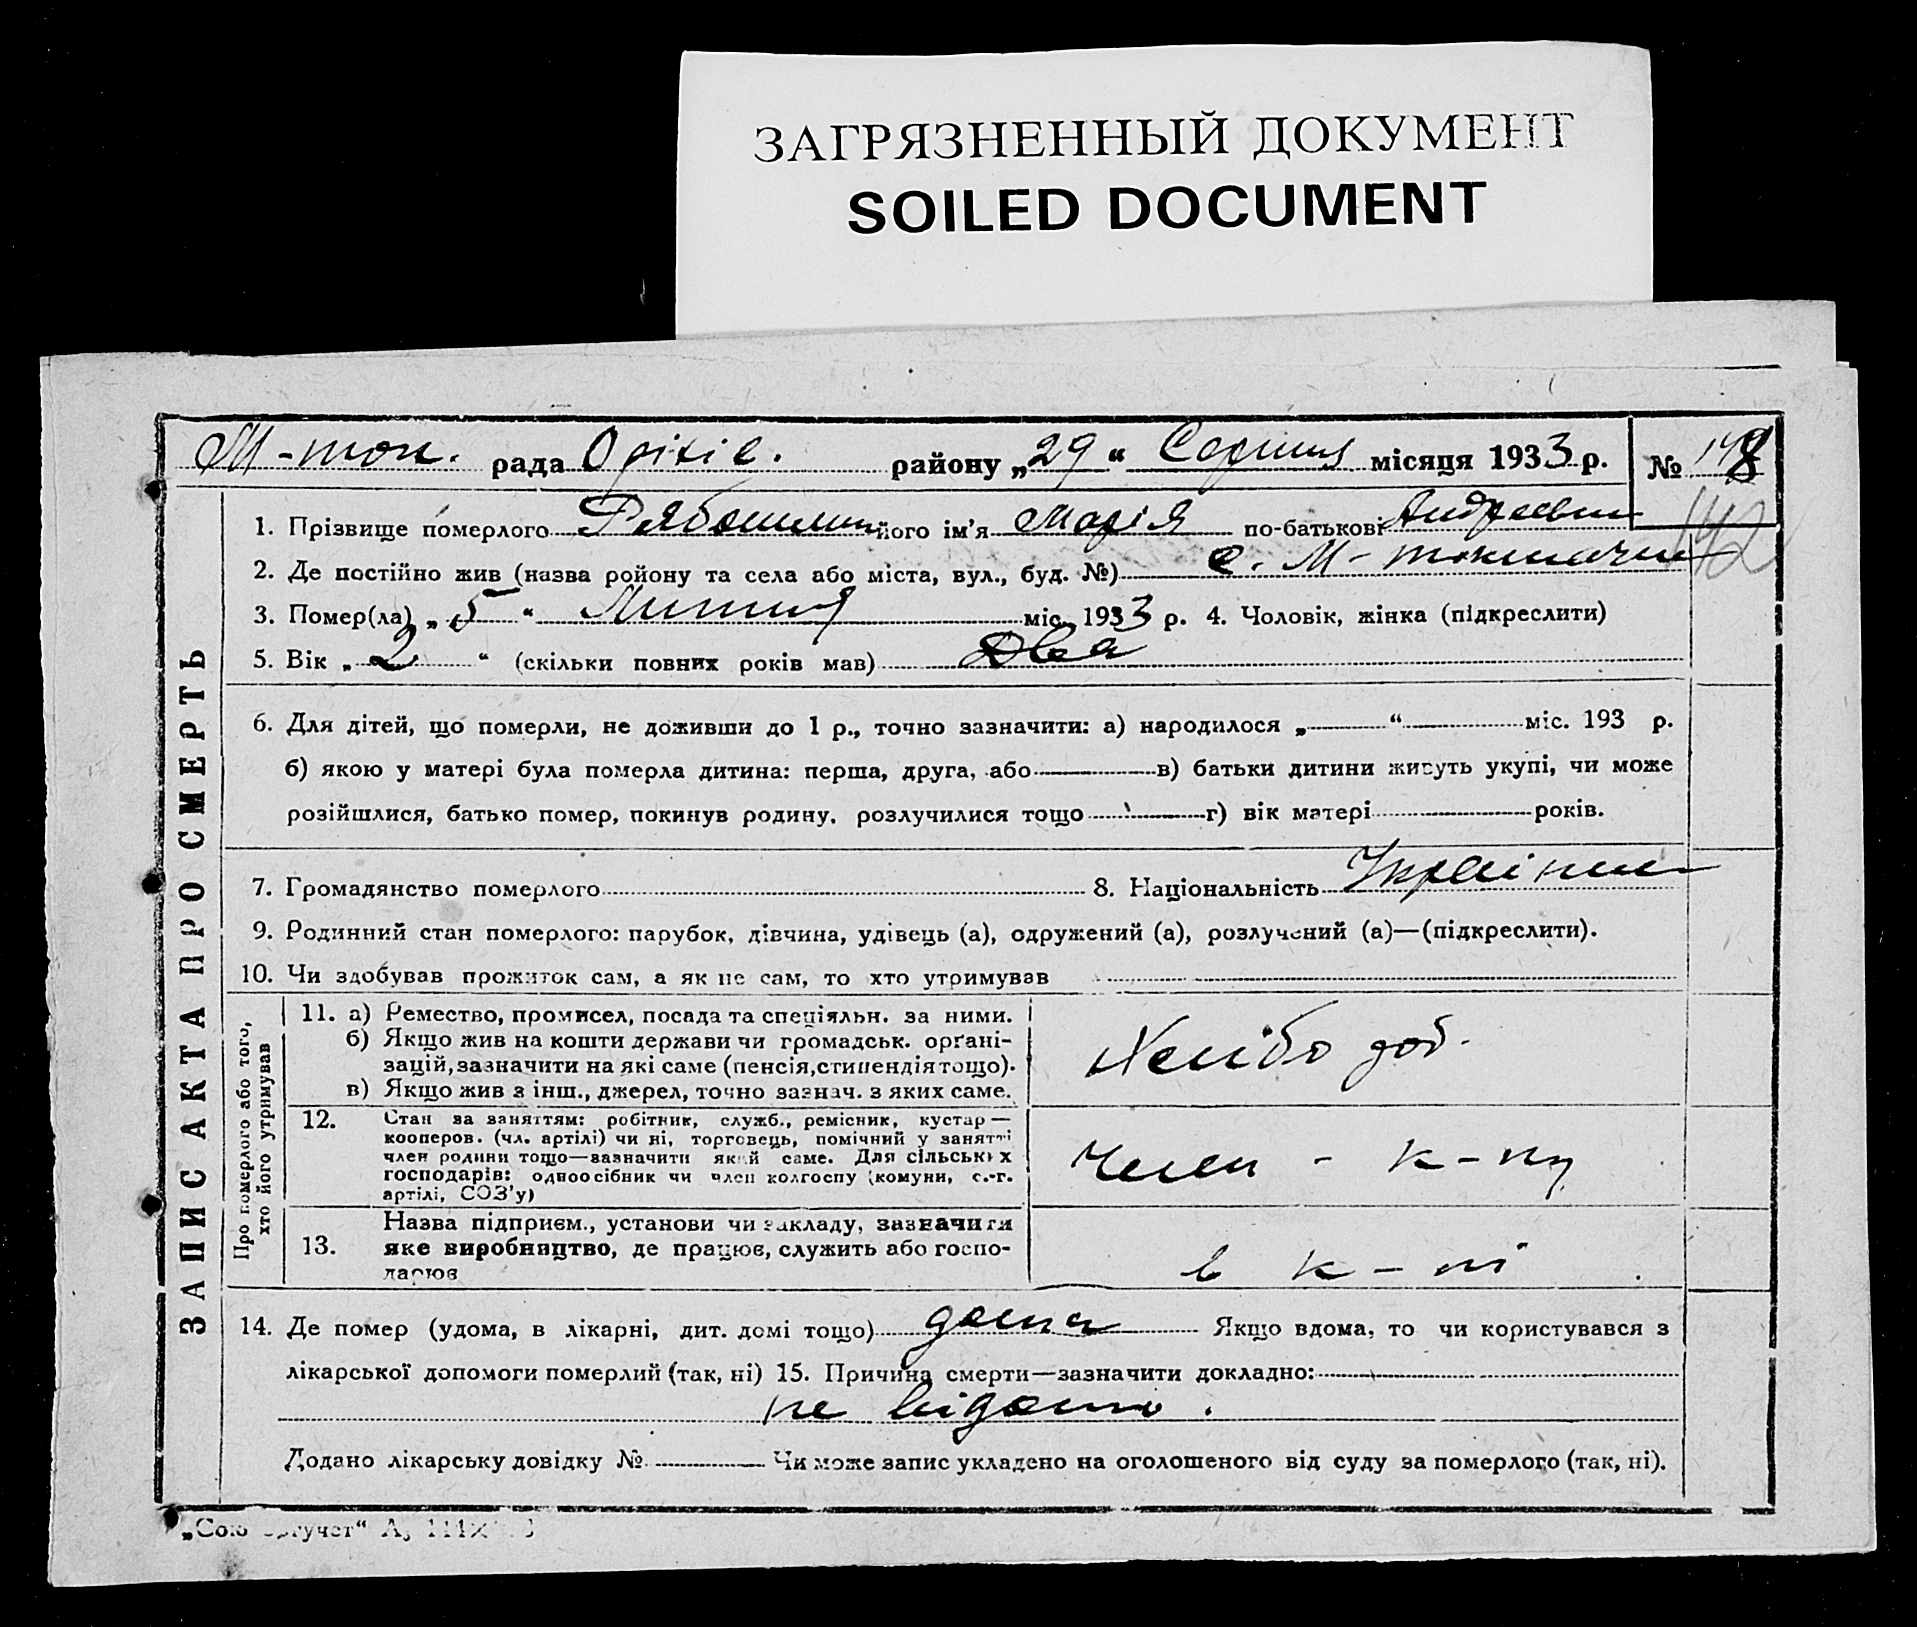 ЗАГРЯЗНЕННЫЙ ДОКУМЕНТ
SOILED DOCUMENT
М-ток. рада Оріхів. району „29“ Серпня місяця 1933 р. № 148
142
1. Прізвище померлого Рябошапка його ім'я Марія по-батькові Андреевна
2. Де постійно жив (назва ройону та села або міста, вул., буд. №) с. М-токмачка
3. Помер(ла) „5“ Липня міс. 1933 р. 4. Чоловік, жінка (підкреслити)
5. Вік „2“ (скільки повних років мав) Два
6. Для дітей, що померли, не доживши до 1 р., точно зазначити: а) народилося „ “ міс. 193 р.
б) якою у матері була померла дитина: перша, друга, або в) батьки дитини живуть укупі, чи може
розійшлися, батько помер, покинув родину, розлучилися тощо г) вік матері років.
7. Громадянство померлого 8. Національність Українка
9. Родинний стан померлого: парубок, дівчина, удівець (а), одружений (а), розлучений (а)—(підкреслити).
10. Чи здобував прожиток сам, а як не сам, то хто утримував
ЗАПИС АКТА ПРО СМЕРТЬ
Про померлого або того,
хто його утримував
11. а) Ремество, промисел, посада та спеціяльн. за ними.
б) Якщо жив на кошти держави чи громадськ. орґані-
зацій, зазначити на які саме (пенсія, стипендія тощо).
в) Якщо жив з інш., джерел, точно зазнач. з яких саме.
Хлібо роб.
12. Стан за заняттям: робітник, служб., ремісник, кустар—
кооперов. (чл. артілі) чи ні, торговець, помічний у занятті
член родини тощо—зазначити який саме. Для сільських
господарів: одноосібник чи член колгоспу (комуни, с.-г.
артілі, СОЗ'у)
Член - к-пу
13. Назва підприєм., установи чи закладу, зазначити
яке виробництво, де працює, служить або госпо-
дарює
в к-пі
14. Де помер (удома, в лікарні, дит. домі тощо) дома Якщо вдома, то чи користувався з
лікарської допомоги померлий (так, ні) 15. Причина смерти—зазначити докладно:
не відомо.
Додано лікарську довідку № Чи може запис укладено на оголошеного від суду за померлого (так, ні).